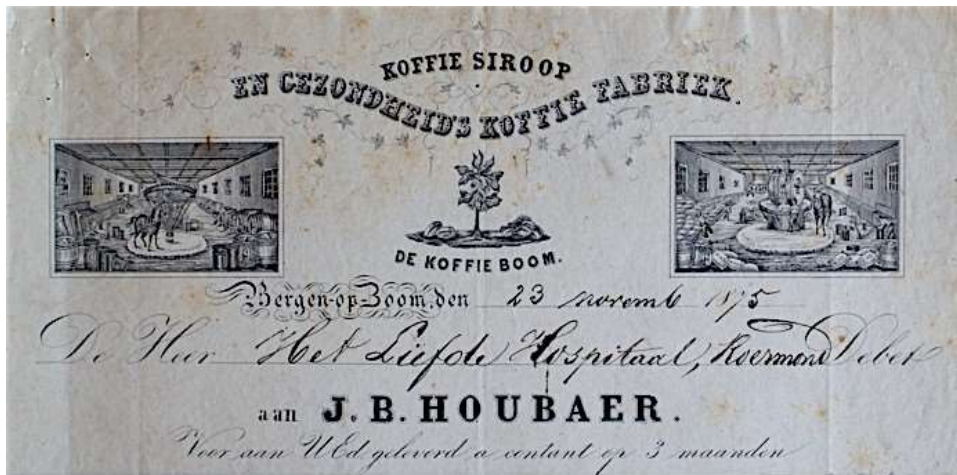 KOFFIE SIROOP
EN GEZONDHEID'S KOFFIE FABRIEK.
DE KOFFIE BOOM.
Bergen-op-Zoom, den 23 novemb 1875
De Heer Het Liefde Hospitaal, Roermond Debet
aan J. B. HOUBAER.
Voor aan UEd geleverd a contant op 3 maanden